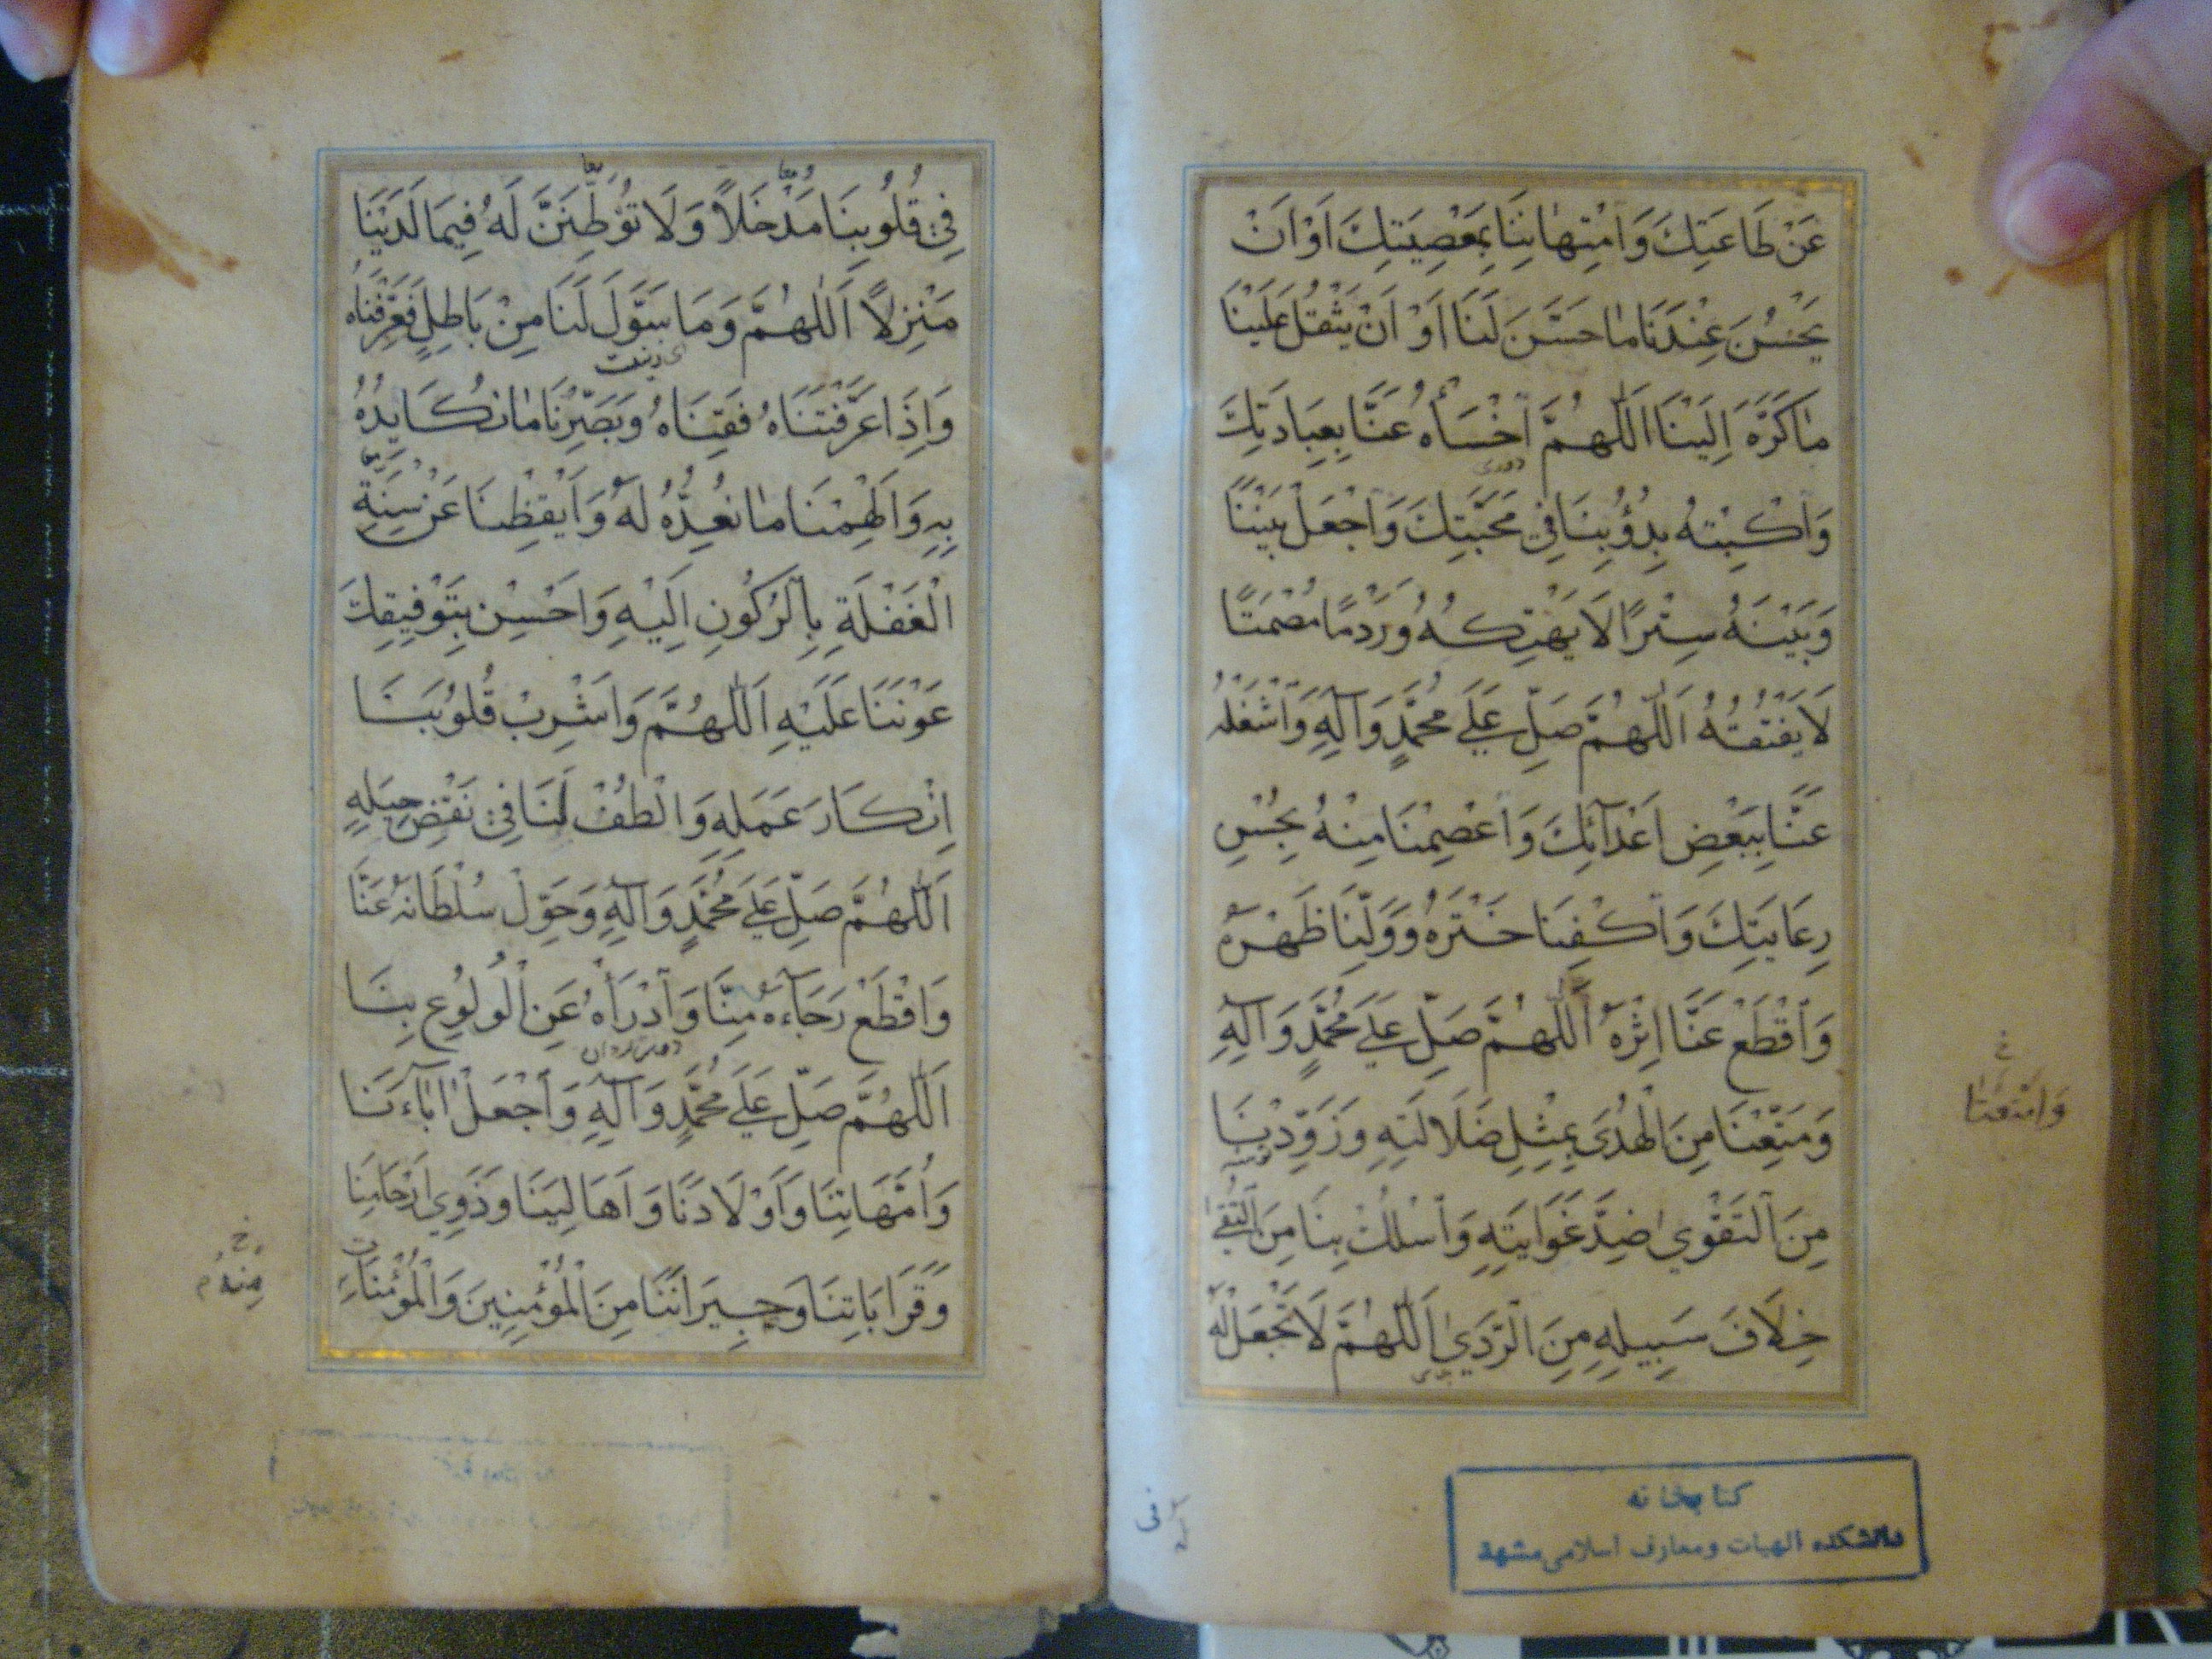 عَنْ طَاعَتِكَ وَامْتِهَانِنَا بِمَعْصِيَتِكَ اَوْ اَنْ
يَحْسُنَ عِنْدَنَا مَا حَسَّنَ لَنَا اَوْ اَنْ يَثْقُلَ عَلَيْنَا
مَا كَرَّهَ اِلَيْنَا اَللّٰهُمَّ اخْسَأْهُ عَنَّا بِعِبَادَتِكَ
وَاكْبِتْهُ بِدُؤُبِنَا فِي مَحَبَّتِكَ وَاجْعَلْ بَيْنَنَا
وَبَيْنَهُ سِتْرًا لَا يَهْتِكُهُ وَرَدْمًا مُصْمَتًا
لَا يَفْتُقُهُ اَللّٰهُمَّ صَلِّ عَلَى مُحَمَّدٍ وَآلِهِ وَاشْغَلْهُ
عَنَّا بِبَعْضِ اَعْدَآئِكَ وَاعْصِمْنَا مِنْهُ بِحُسْنِ
رِعَايَتِكَ وَاكْفِنَا خَتْرَهُ وَوَلِّنَا ظَهْرَهُ
وَاقْطَعْ عَنَّا اِثْرَهُ اَللّٰهُمَّ صَلِّ عَلَى مُحَمَّدٍ وَآلِهِ
وَمَتِّعْنَا مِنَ الْهُدَى بِمِثْلِ ضَلَالَتِهِ وَزَوِّدْنَا
مِنَ التَّقْوَى ضِدَّ غَوَايَتِهِ وَاسْلُكْ بِنَا مِنَ التُّقَى
خِلَافَ سَبِيلِهِ مِنَ الرَّدَى اَللّٰهُمَّ لَا تَجْعَلْ لَهُ
وَامْتِعْنَا
كتابخانه
دانشكده الهيات و معارف اسلامی مشهد
فِي قُلُوبِنَا مَدْخَلًا وَلَا تُوَطِّنَنَّ لَهُ فِيمَا لَدَيْنَا
مَنْزِلًا اَللّٰهُمَّ وَمَا سَوَّلَ لَنَا مِنْ بَاطِلٍ فَعَرِّفْنَاهُ
وَاِذَا عَرَّفْتَنَاهُ فَقِنَاهُ وَبَصِّرْنَا مَا نُكَايِدُهُ
بِهِ وَاَلْهِمْنَا مَا نُعِدُّهُ لَهُ وَاَيْقِظْنَا عَنْ سِنَةِ
الْغَفْلَةِ بِالرُّكُونِ اِلَيْهِ وَاَحْسِنْ بِتَوْفِيقِكَ
عَوْنَنَا عَلَيْهِ اَللّٰهُمَّ وَاَشْرِبْ قُلُوبَنَا
اِنْكَارَ عَمَلِهِ وَالْطُفْ لَنَا فِي نَقْضِ حِيَلِهِ
اَللّٰهُمَّ صَلِّ عَلَى مُحَمَّدٍ وَآلِهِ وَحَوِّلْ سُلْطَانَهُ عَنَّا
وَاقْطَعْ رَجَآءَهُ مِنَّا وَادْرَأْهُ عَنِ الْوُلُوعِ بِنَا
اَللّٰهُمَّ صَلِّ عَلَى مُحَمَّدٍ وَآلِهِ وَاجْعَلْ اٰبَآءَنَا
وَاُمَّهَاتِنَا وَاَوْلَادَنَا وَاَهَالِيَنَا وَذَوِي اَرْحَامِنَا
وَقَرَابَاتِنَا وَجِيرَانَنَا مِنَ الْمُؤْمِنِينَ وَالْمُؤْمِنَاتِ